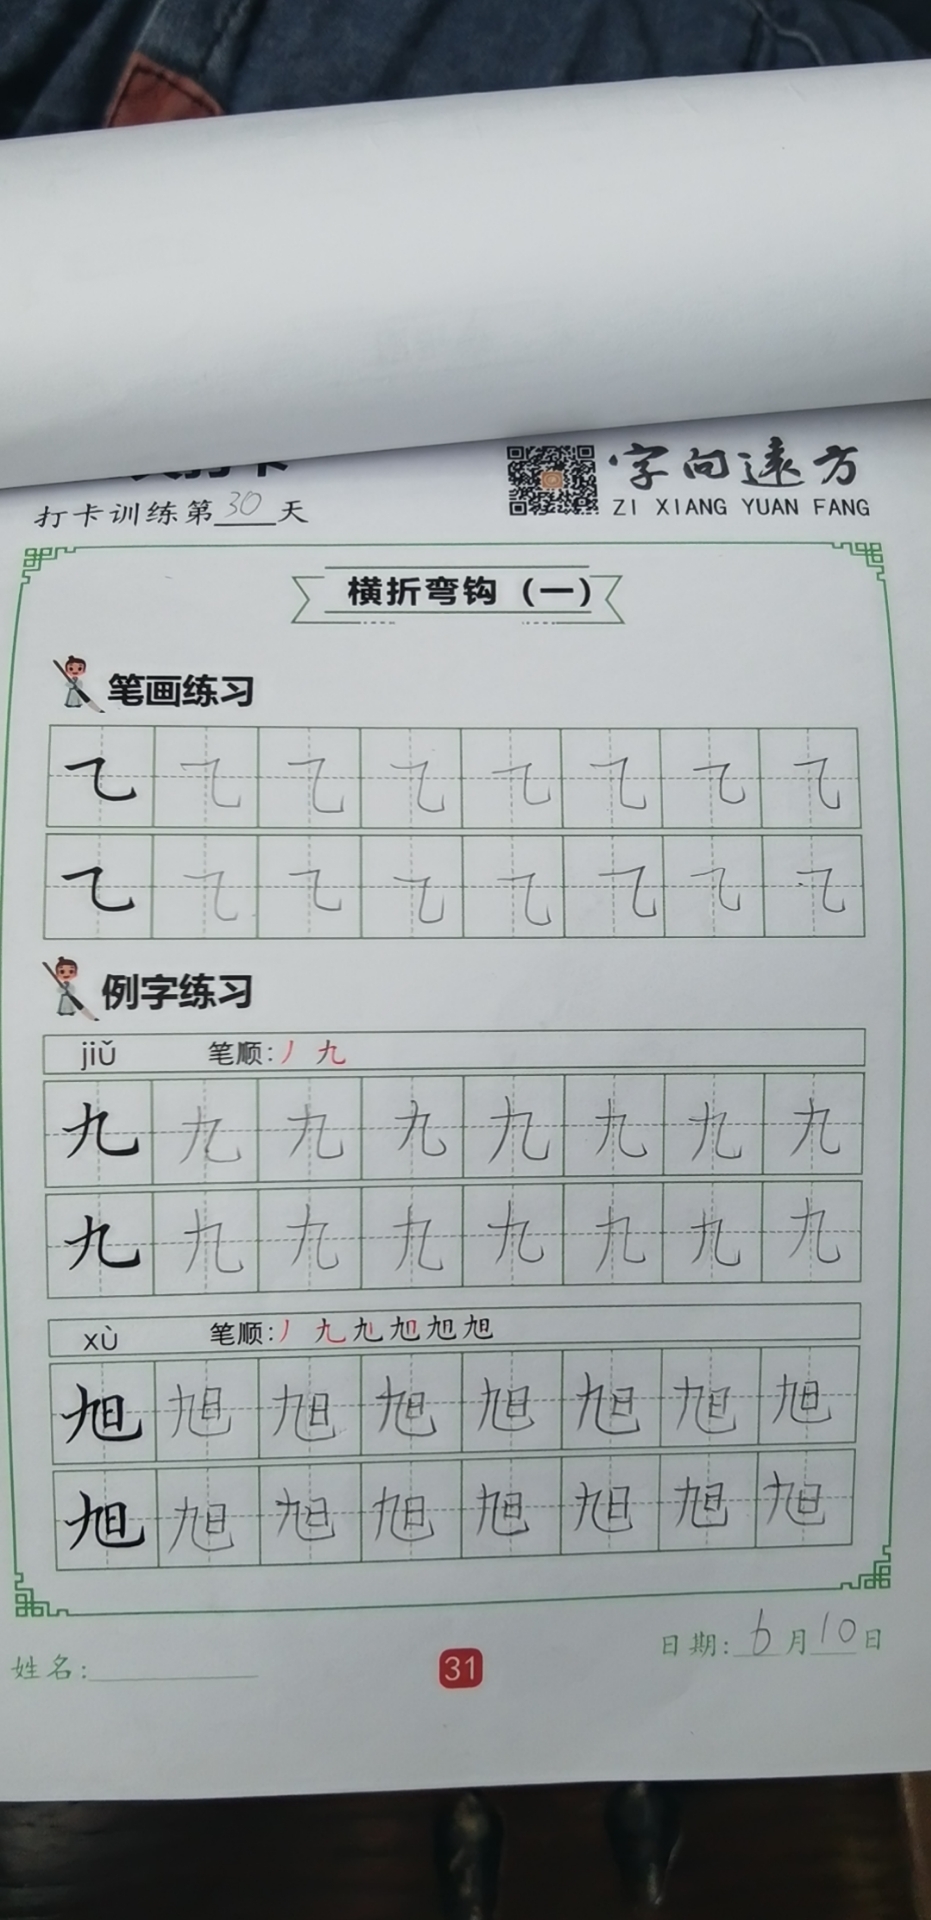 打卡训练第30天
字向遠方
ZI XIANG YUAN FANG
横折弯钩（一）
笔画练习
㇈ ㇈ ㇈ ㇈ ㇈ ㇈ ㇈ ㇈
㇈ ㇈ ㇈ ㇈ ㇈ ㇈ ㇈ ㇈
例字练习
jiǔ 笔顺:丿 九
九 九 九 九 九 九 九 九
九 九 九 九 九 九 九 九
xù 笔顺:丿 九 旭 旭 旭 旭
旭 旭 旭 旭 旭 旭 旭 旭
旭 旭 旭 旭 旭 旭 旭 旭
姓名:
31
日期:6月10日